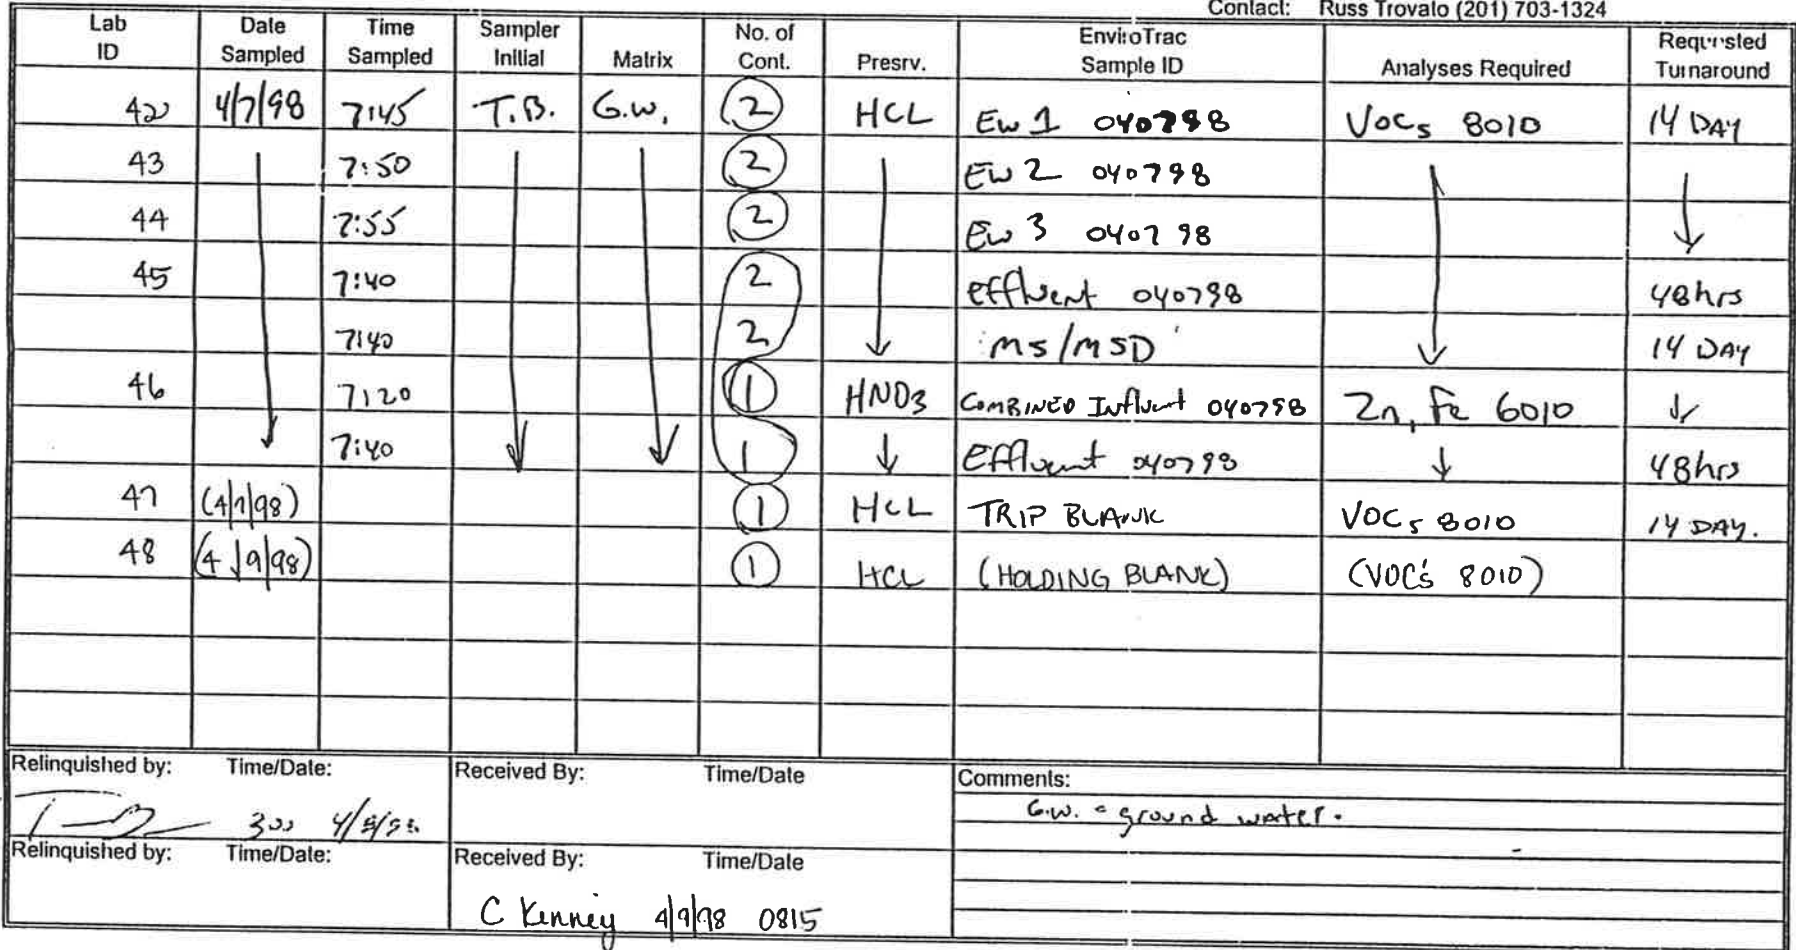 Contact: Russ Trovalo (201) 703-1324
Lab ID Date Sampled Time Sampled Sampler Initial Matrix No. of Cont. Presrv. EnviroTrac Sample ID Analyses Required Requested Turnaround
42 4/7/98 7:45 T.B. G.W. 2 HCL EW 1 040798 VOCs 8010 14 DAY
43 7:50 2 EW 2 040798
44 7:55 2 EW 3 040798
45 7:40 2 effluent 040798 48hrs
7:40 2 MS/MSD 14 DAY
46 7:20 1 HNO3 COMBINED Influent 040798 Zn, Fe 6010
7:40 1 Effluent 040798 48hrs
47 (4/7/98) 1 HCL TRIP BLANK VOCs 8010 14 DAY.
48 (4/9/98) 1 HCL (HOLDING BLANK) (VOC's 8010)
Relinquished by: Time/Date: Received By: Time/Date Comments:
G.W. = ground water.
300
Relinquished by: Time/Date: Received By: Time/Date
C Kenney 4/9/98 0815